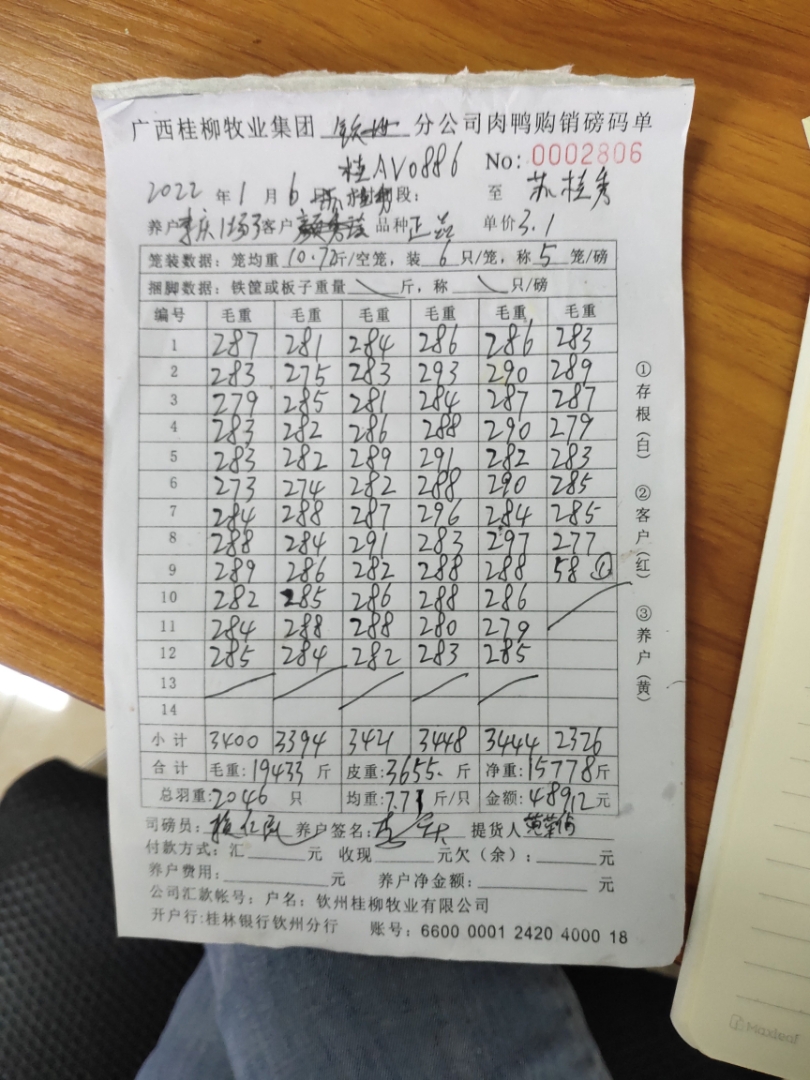 广西桂柳牧业集团 钦州 分公司肉鸭购销磅码单
桂AV0886 No: 0002806
2022 年 1 月 6 日 段: 至 苏桂秀
养户 李庆1场3 客户 品种 正品 单价 3.1
笼装数据: 笼均重 10.72斤/空笼, 装 6 只/笼, 称 5 笼/磅
捆脚数据: 铁筐或板子重量 斤, 称 只/磅
编号 毛重 毛重 毛重 毛重 毛重 毛重
1 287 281 284 286 286 283
2 283 275 283 293 290 289
3 279 285 281 284 287 287
4 283 282 286 288 290 279
5 283 282 289 291 282 283
6 273 274 282 288 290 285
7 284 288 287 296 284 285
8 288 284 291 283 297 277
9 289 286 282 288 288 58 ①
10 282 285 286 288 286
11 284 288 288 280 279
12 285 284 282 283 285
13
14
小计 3400 3394 3421 3448 3444 2326
合计 毛重: 19433 斤 皮重: 3655. 斤 净重: 15778斤
总羽重: 2046 只 均重: 7.71 斤/只 金额: 48912 元
司磅员: 养户签名: 提货人
付款方式: 汇 元 收现 元欠(余): 元
养户费用: 元 养户净金额: 元
公司汇款帐号: 户名: 钦州桂柳牧业有限公司
开户行: 桂林银行钦州分行 账号: 6600 0001 2420 4000 18
①存根(白) ②客户(红) ③养户(黄)
Maxleaf